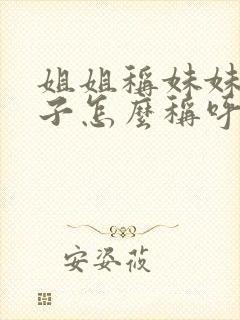 姐姐稱妹妹
子怎麼稱呼
安姿莜